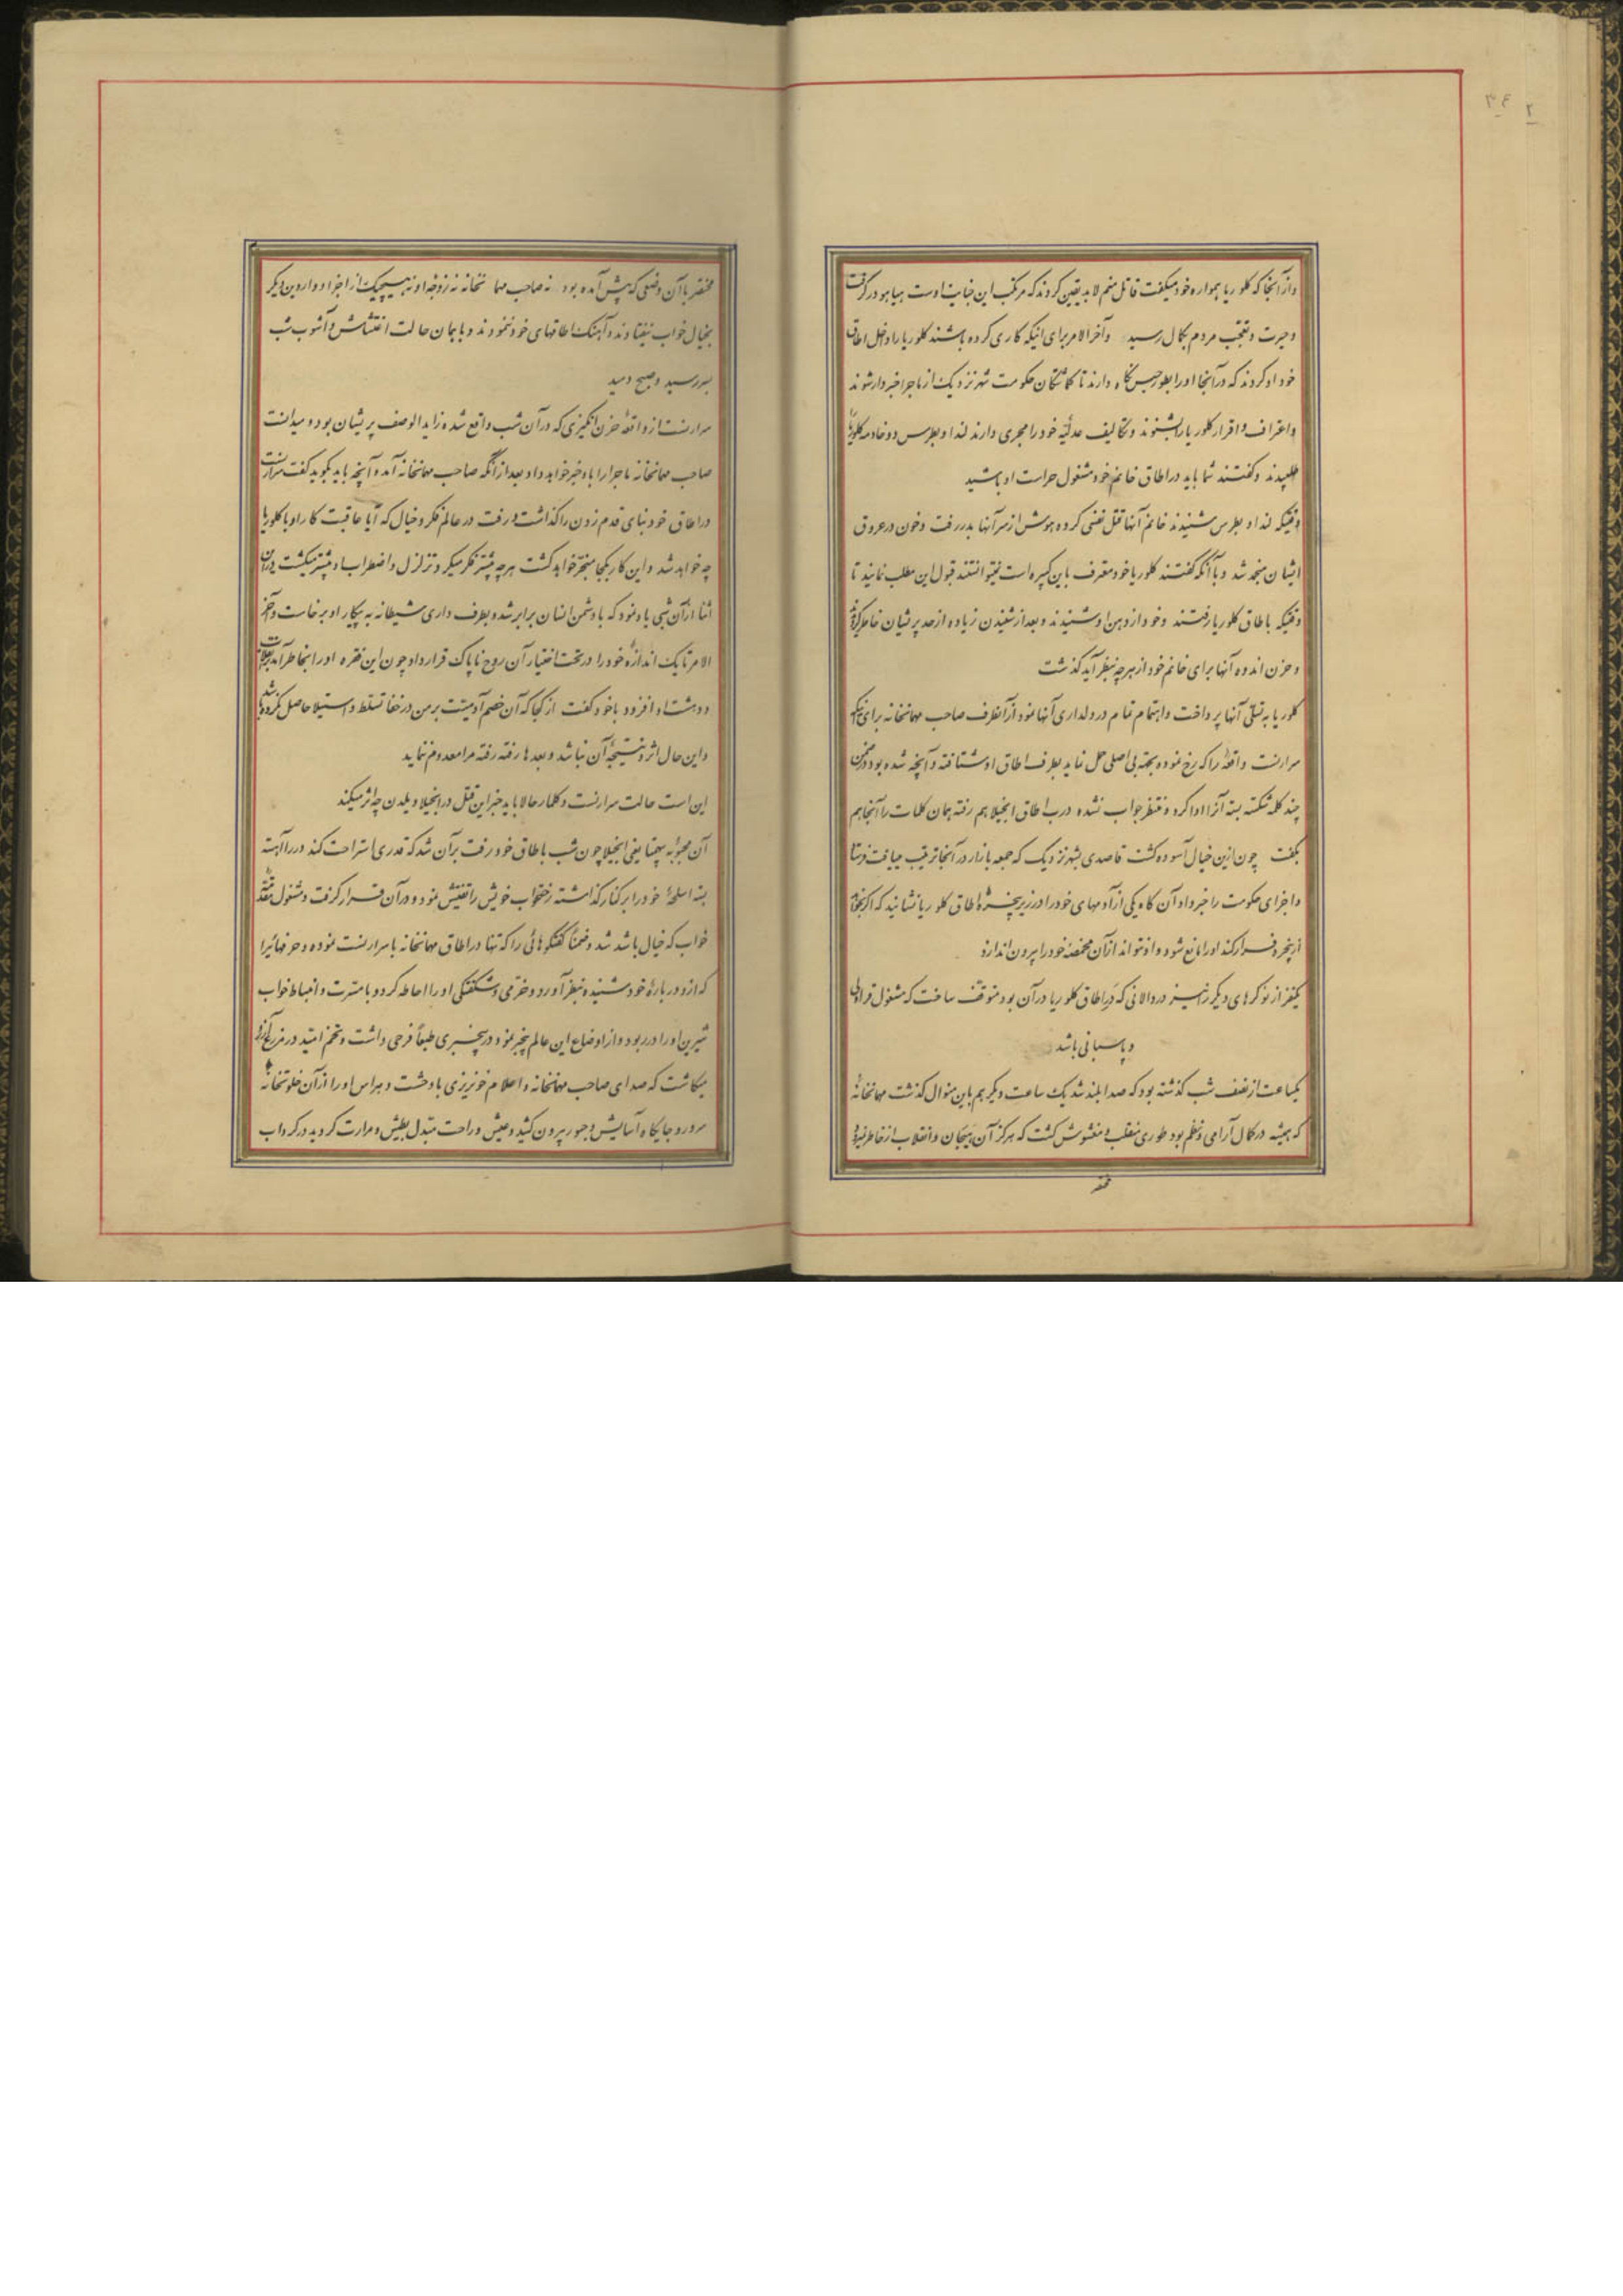 ۳٤
۲
و از آنجا که کلوریا همواره خود میگفت قاتل منم لابد یقین کردند که مرتکب این جنایت اوست هیاهو در گرفت
و حیرت و تعجب مردم بکمال رسید و آخر الامر برای اینکه کاری کرده باشند کلوریا را داخل اطاق
خود او کردند که در آنجا او را بطور حبس نگاه دارند تا گماشتگان حکومت شهر نزدیک از ماجرا خبردار شوند
و اعتراف و اقرار کلوریا را بشنوند و تکالیف عدلیّه خود را مجری دارند لندا و بطرس دو خادمه کلوریا را
طلبیدند و گفتند شما باید در اطاق خانم خود مشغول حراست او باشید
وقتیکه لندا و بطرس شنیدند خانم آنها قتل نفسی کرده هوش از سر آنها بدر رفت و خون در عروق
ایشان منجمد شد و با آنکه گفتند کلوریا خود معترف باین کبیره است نمیتوانستند قبول این مطلب نمایند تا
وقتیکه باطاق کلوریا رفتند و خود از دهن او شنیدند و بعد از شنیدن زیاده از حد پریشان خاطر گردیدند
و حزن اندوه آنها برای خانم خود از هر چه بنظر آید گذشت
کلوریا به تسلّی آنها پرداخت و اهتمام تمام در دلداری آنها نمود از آنطرف صاحب مهمانخانه برای اینکه
سرارنست واقعهٔ را که رخ نموده بجهة بی اصلی حمل نماید بطرف اطاق او شتافته و آنچه شده بود در ضمن
چند کلمه شکسته بسته آنرا ادا کرد و منتظر جواب نشده درب اطاق انجیلا هم رفته همان کلمات را آنجا هم
بگفت چون ازین خیال آسوده گشت قاصدی بشهر نزدیک که جمعه بازار در آنجا ترتیب مییافت فرستاد
و اجزای حکومت را خبر داد آن گاه یکی از آدمهای خود را در زیر پنجرهٔ اطاق کلوریا نشانید که اگر بخواهد
از پنجره فرار کند او را مانع شود و او نتواند از آن مخمصه خود را بیرون اندازد
یکنفر از نوکرهای دیگر را نیز در دالانی که در اطاق کلوریا در آن بود متوقف ساخت که مشغول قراولی
و پاسبانی باشد
یکساعت از نصف شب گذشته بود که صدا بلند شد یک ساعت دیگر هم باین منوال گذشت مهمانخانهٔ
که همیشه در کمال آرامی و نظم بود طوری منقلب و مغشوش گشت که هرگز آن هیجان و انقلاب از خاطر نمیرود
مختصر
مختصر با آن وضعی که پیش آمده بود نه صاحب مهمانخانه نه زوجهٔ او نه هیچیک از اجزا و واردین دیگر
بخیال خواب نیفتادند و آهنک اطاقهای خود ننمودند و با همان حالت اغتشاش و آشوب شب
بسر رسید و صبح دمید
سرارنست از واقعهٔ حزن انگیزی که در آن شب واقع شده زاید الوصف پریشان بود و میدانست
صاحب مهمانخانه ماجرا را باو خبر خواهد داد بعد از آنکه صاحب مهمانخانه آمد و آنچه باید بگوید گفت سرارنست
در اطاق خود بنای قدم زدن را گذاشت و رفت در عالم فکر و خیال که آیا عاقبت کار او با کلوریا
چه خواهد شد و این کار بکجا منجر خواهد گشت هر چه بیشتر فکر میکرد تزلزل و اضطراب او بیشتر میگشت در آن
اثنا از آن شبی یاد نمود که با دشمن انسان برابر شد و بطرف داری شیطانه به پیکار او برخاست و آخر
الامر تا یک اندازه خود را در تحت اختیار آن روح ناپاک قرار داد چون این فقره او را بخاطر آمد
و دهشت او افزود با خود گفت از کجا که آن خصم آدمیّت بر من در خفا تسلط و استیلا حاصل نکرده باشد
و این حال اثر و نتیجهٔ آن نباشد و بعدها رفته رفته مرا معدوم ننماید
این است حالت سرارنست و کلمار حالا باید خبر این قتل در انجیلا ویلدن چه اثر میکند
آن محبوبهٔ یعنی انجیلا چون شب باطاق خود رفت بر آن شد که قدری استراحت کند در را آهسته
بسته اسلحهٔ خود را بر کنار گذاشته رختخواب خویش را تفتیش نمود و در آن قرار گرفت و مشغول مقدمهٔ
خواب که خیال باشد شد و ضمناً گفتگوهائی را که تنها در اطاق مهمانخانه با سرارنست نموده و حرفهائیرا
که از و در بارهٔ خود شنیده بنظر آورد و خرمی و شکفتگی او را احاطه کرد و با مسرت و انبساط خواب
شیرین او را در ربود و از اوضاع این عالم بیخبر نمود در بیخبری طبعاً فرحی داشت و تخم امید در مزرع آرزو
میکاشت که صدای صاحب مهمانخانه و اعلام خونریزی با وحشت و هراس او را از آن خلوتخانهٔ
سرور و جایگاه آسایش و حبور بیرون کشید و عیش و راحت مبدّل بطیش و مرارت گردید در گرداب